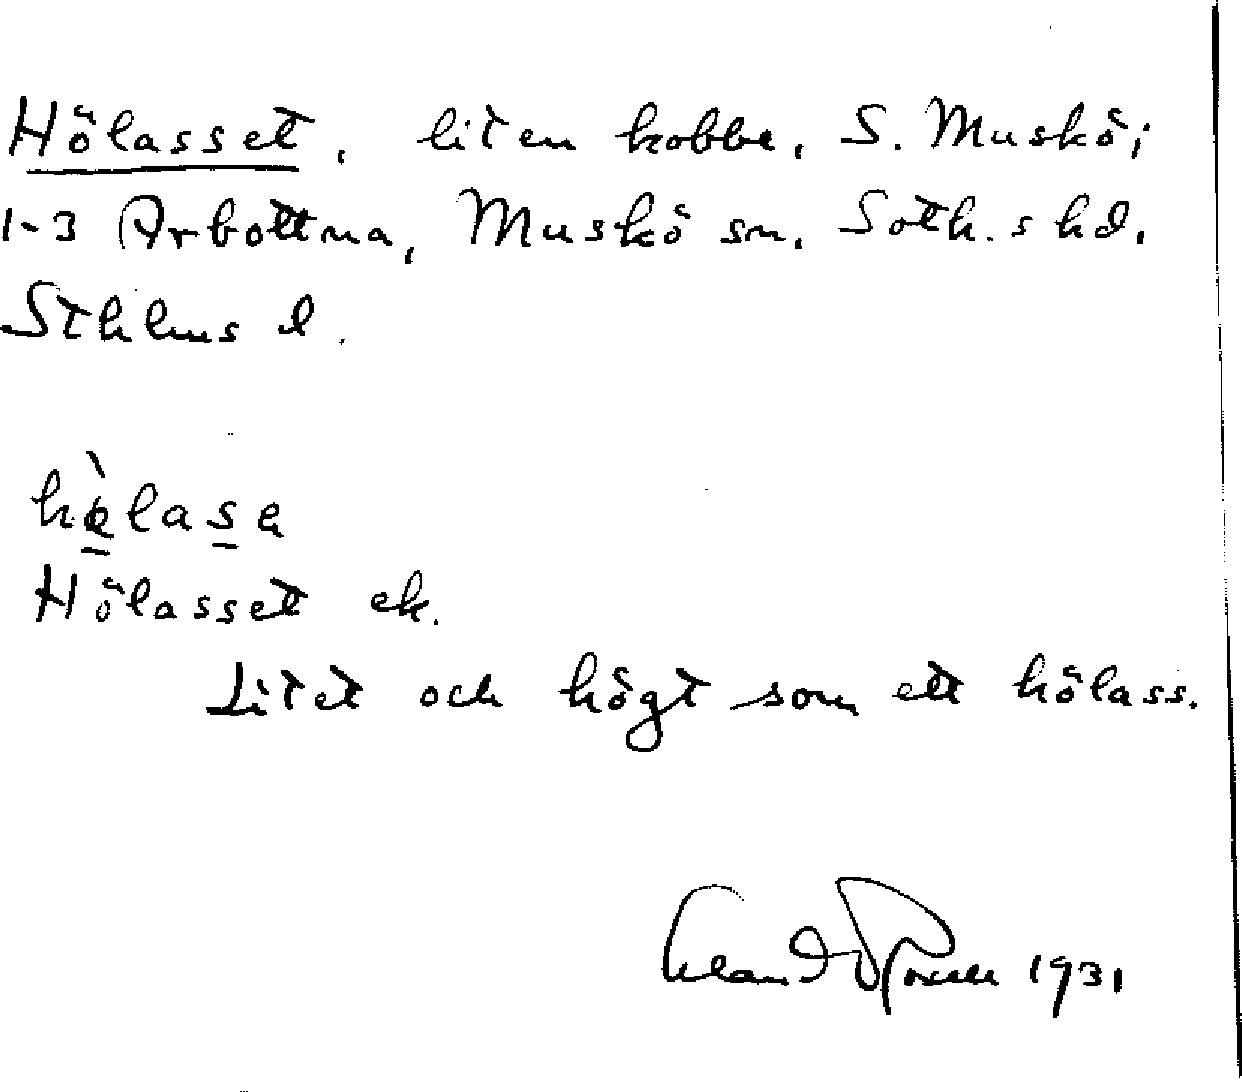 Hölasset, liten kobbe, S. Muskö;
1-3 Arbottna, Muskö sn, Soth.s hd.
Sthlms l.
hǫ̀lasa
Hölasset ek.
Litet och högt som ett hölass.
1931